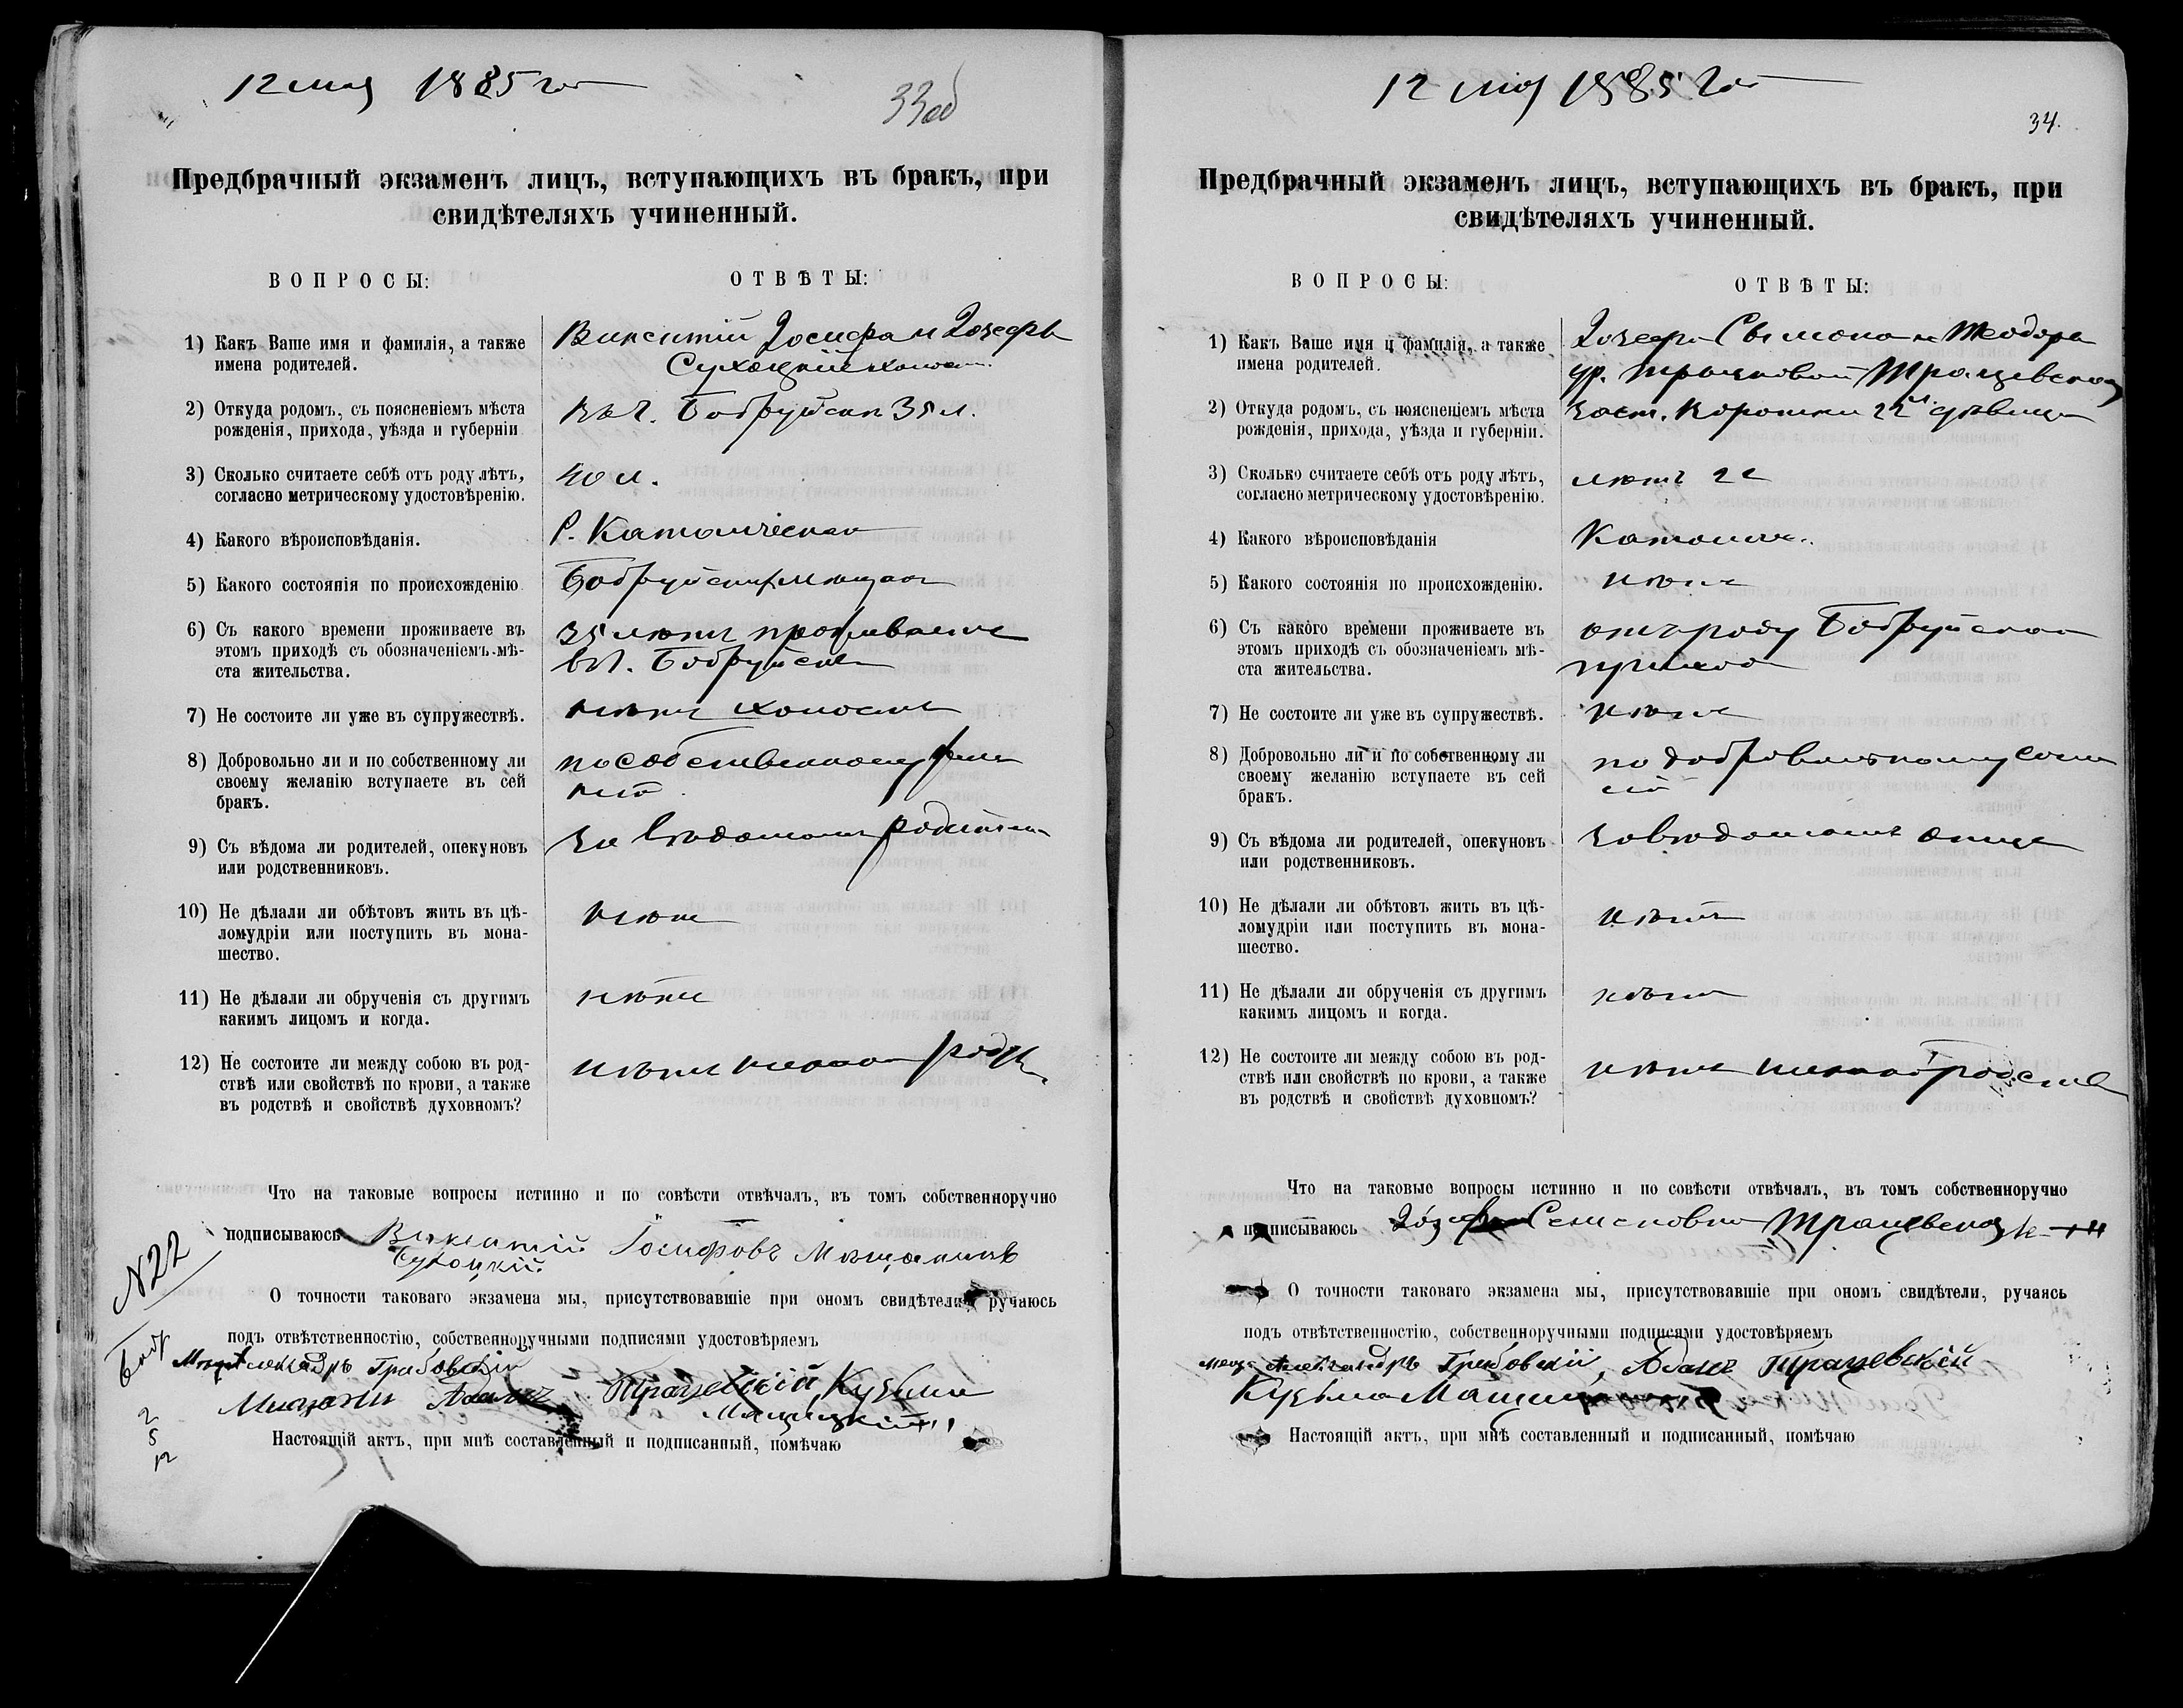 12 мая 1885 год
33об
Предбрачный экзаменъ лицъ, вступающихъ въ бракъ, при
свидѣтеляхъ учиненный.
ВОПРОСЫ:
ОТВѢТЫ:
1) Какъ Ваше имя и фамилія, а также
имена родителей.
Викентій Іосифа и Іозефы
Сухоцкій
2) Откуда родомъ, съ поясненіемъ мѣста
рожденія, прихода, уѣзда и губерніи
Бобруйска 35 л.
3) Сколько считаете себѣ отъ роду лѣтъ,
согласно метрическому удостовѣренію.
40 л.
4) Какого вѣроисповѣданія.
Р. Католическаго
5) Какого состоянія по происхожденію
Бобруйскій
6) Съ какого времени проживаете въ
этомъ приходѣ съ обозначеніемъ мѣ-
ста жительства.
35 лѣтъ проживаетъ
въ г. Бобруйскѣ
7) Не состоите ли уже въ супружествѣ.
нѣтъ холостъ
8) Добровольно ли и по собственному ли
своему желанію вступаете въ сей
бракъ.
по собственному жела
нію
9) Съ вѣдома ли родителей, опекуновъ
или родственниковъ.
За вѣдомомъ
10) Не дѣлали ли обѣтовъ жить въ цѣ-
ломудріи или поступить въ мона-
шество.
нѣтъ
11) Не дѣлали ли обрученія съ другимъ
какимъ лицомъ и когда.
нѣтъ
12) Не состоите ли между собою въ род-
ствѣ или свойствѣ по крови, а также
въ родствѣ и свойствѣ духовномъ?
нѣтъ
Что на таковые вопросы истинно и по совѣсти отвѣчалъ, въ томъ собственноручно
подписываюсь Викентій Іосифовъ Мѣщанинъ
Сухоцкій
N 22
О точности таковаго экзамена мы, присутствовавшіе при ономъ свидѣтели, ручаюсь
подъ отвѣтственностію, собственноручными подписями удостовѣряемъ
Грибовскій
Адамъ Трацевскій, Кузьма
Мащицкій
2
5
12
Настоящій актъ, при мнѣ составленный и подписанный, помѣчаю
12 мая 1885 год
34.
Предбрачный экзаменъ лицъ, вступающихъ въ бракъ, при
свидѣтеляхъ учиненный.
ВОПРОСЫ:
ОТВѢТЫ:
1) Какъ Ваше имя и фамилія, а также
имена родителей.
Іозефа Сымона и Теодоры
Трацевская
2) Откуда родомъ, съ поясненіемъ мѣста
рожденія, прихода, уѣзда и губерніи.
заст. 22 дѣвица
3) Сколько считаете себѣ отъ роду лѣтъ,
согласно метрическому удостовѣренію.
лѣтъ 22
4) Какого вѣроисповѣданія
Католич.
5) Какого состоянія по происхожденію.
6) Съ какого времени проживаете въ
этомъ приходѣ съ обозначеніемъ мѣ-
ста жительства.
отъ роду Бобруйскаго
прихода
7) Не состоите ли уже въ супружествѣ.
нѣтъ
8) Добровольно ли и по собственному ли
своему желанію вступаете въ сей
бракъ.
по добровольному согла
сію
9) Съ вѣдома ли родителей, опекуновъ
или родственниковъ.
за вѣдомомъ отца
10) Не дѣлали ли обѣтовъ жить въ цѣ-
ломудріи или поступить въ мона-
шество.
нѣтъ
11) Не дѣлали ли обрученія съ другимъ
какимъ лицомъ и когда.
нѣтъ
12) Не состоите ли между собою въ род-
ствѣ или свойствѣ по крови, а также
въ родствѣ и свойствѣ духовномъ?
нѣтъ никакого родства
Что на таковые вопросы истинно и по совѣсти отвѣчалъ, въ томъ собственноручно
подписываюсь Трацевская
О точности таковаго экзамена мы, присутствовавшіе при ономъ свидѣтели, ручаясь
подъ отвѣтственностію, собственноручными подписями удостовѣряемъ
Александръ Грибовскій, Адамъ Трацевскій
Кузьма
Настоящій актъ, при мнѣ составленный и подписанный, помѣчаю